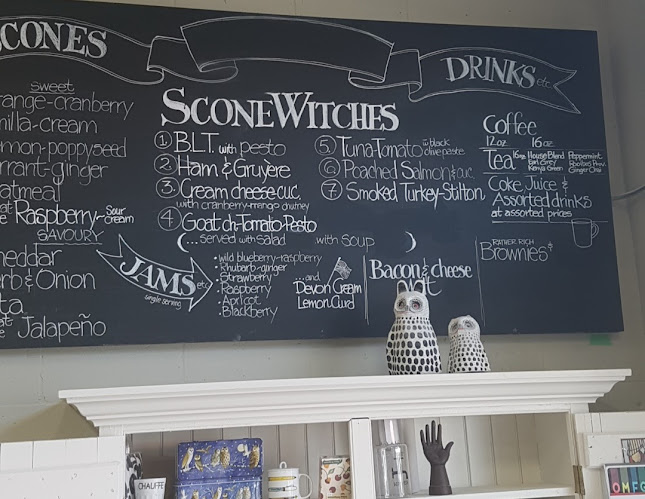 SCONES
sweet
range-cranberry
nilla-cream
mon-poppyseed
rrant-ginger
atmeal
Raspberry-Sour cream
SAVOURY
heddar
erb & Onion
ta
Jalapeño
SCONEWITCHES
① B.L.T. with pesto
② Ham & Gruyere
③ Cream cheese-cuc.
with cranberry-mango chutney
④ Goat ch-Tomato-Pesto
⑤ Tuna-Tomato w black olive paste
⑥ Poached Salmon & cuc
⑦ Smoked Turkey-Stilton
...served with salad with soup
JAMS etc
single serving
• wild blueberry-raspberry
• Rhubarb-ginger
• Strawberry
• Raspberry
• Apricot
• Blackberry
...and
Devon Cream
Lemon Curd
Bacon & cheese
DRINKS etc
Coffee
12 oz 16 oz
Tea 16oz House Blend Peppermint
Earl Grey
Ginger
Coke Juice &
Assorted drinks
at assorted prices
RATHER RICH
Brownies
CHAUFFE
OMFG